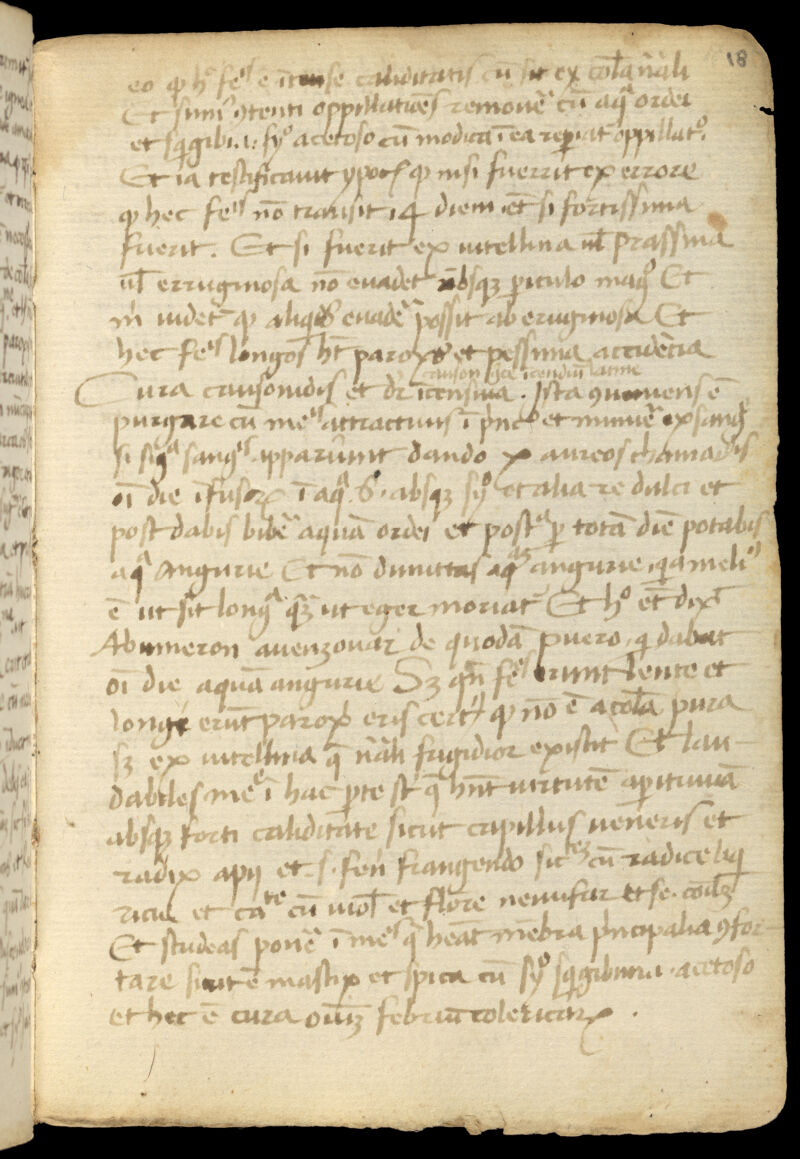 18
eo qͥ hͦ feˢ ē itense caliditatis cū sit ex col̄a nāli
Et sumͥ ɔtenti oppillatiōēs removē cū aqͣ ordei
et sqͥgibi .i. syͦ acetoso cū modica ī ea rep̄iat oppillatͦ.
Et ia testificavit ypocͬ qͥ nisi fuerrit ex errore
qͥ hec feˢ nō transit 14 diem et̄ si fortissima
fuerit. Et si fuerit ex vitellina ul̄ prassina
ul̄ erruginosa nō evadet absqȝ p̄iculo magͦ Et
m̄ videt̄ qͥ aliqͥs evadē possit ab eruginosa Et
hec feˢ longos hn̄t paroxoˢ et pessima accidētia
causon gce incendiū latine
Cura causonidis et dr̄ īcensiva. Ista ɔveniens ē
purgare cū meˢ attractivis ī pͥncͦ et minuē ex sangͤ
si sigͣ sangˢ apparūint dando x aureos thamaris
oī die īfusorꝝ ī aqͣ absqȝ syͦ et alia re dulci et
post dabis bibē aquā ordei et postͣ p totā diē potabis
aqͣ angurie Et nō dimittas aqͣꝫ angurie qͥa meliͧ
ē ut sit longͣ qͣȝ ut eger moriat̄ Et hͦ et̄ dixͭ
Abimeron avenzoar de quodā puero, qͥ dabat
oī die aquā angurie Sȝ qn̄ feˢ erunt lente et
longe erūt paroxͥ eris certͧ qͥ nō ē a col̄a pura
sȝ ex vitellina qͣ nāli frigidior existit Et lau-
dabiles meͤ ī hac p̄te st̄ qͤ hn̄t virtutē ap̄itivā
absqȝ forti caliditate sicut capillus veneris et
radix apij et .s. fen̄ frangendo siccᵗᵉȝ cū radice liqͥ
ricie et caᵗᵉ cū viol̄ et flore nenufar et se.
Et studeas ponē ī meˢ qͣ heāt mēbra pͥncipalia ɔfor-
tare sicut ē mastix et spica cū syͦ sqͥgibinu acetoso
et hec ē cura oīuȝ febriū colericarꝝ.